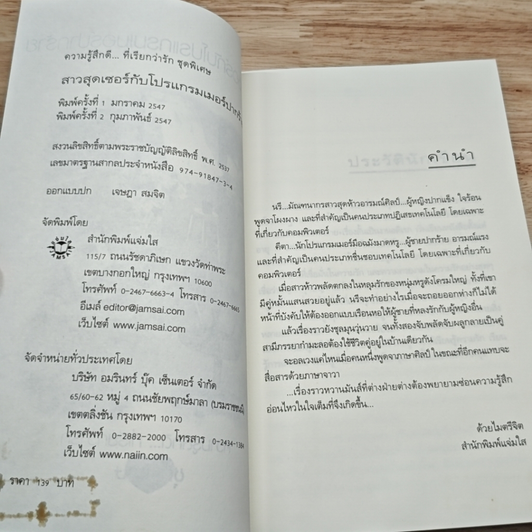 ความรู้สึกดี... ที่เรียกว่ารัก ชุดพิเศษ
สาวสุดเซอร์กับโปรแกรมเมอร์
พิมพ์ครั้งที่ 1 มกราคม 2547
พิมพ์ครั้งที่ 2 กุมภาพันธ์ 2547
สงวนลิขสิทธิ์ตามพระราชบัญญัติลิขสิทธิ์ พ.ศ. 2537
เลขมาตรฐานสากลประจำหนังสือ 974-91847-3-4
ออกแบบปก เจษฎา สมจิต
จัดพิมพ์โดย
สำนักพิมพ์แจ่มใส
115/7 ถนนรัชดาภิเษก แขวงวัดท่าพระ
เขตบางกอกใหญ่ กรุงเทพฯ 10600
โทรศัพท์ 0-2467-6663-4 โทรสาร
อีเมล์ editor@jamsai.com
เว็บไซต์ www.jamsai.com
จัดจำหน่ายทั่วประเทศโดย
บริษัท อมรินทร์ บุ๊ค เซ็นเตอร์ จำกัด
65/60-62 หมู่ 4 ถนนชัยพฤกษ์มาลา
เขตตลิ่งชัน กรุงเทพฯ 10170
โทรศัพท์ 0-2882-2000 โทรสาร
เว็บไซต์ www.naiin.com
ราคา 139 บาท
คำนำ
นรี...มัณฑนากรสาวสุดห้าวอารมณ์ศิลป์...ผู้หญิงปากแข็ง ใจร้อน
พูดจาโผงผาง และที่สำคัญเป็นคนประเภทปฏิเสธเทคโนโลยี โดยเฉพาะ
ที่เกี่ยวกับคอมพิวเตอร์
...นักโปรแกรมเมอร์มือฉมังมาดหรู...ผู้ชายปากร้าย อารมณ์แรง
และที่สำคัญเป็นคนประเภทชื่นชอบเทคโนโลยี โดยเฉพาะที่เกี่ยวกับ
คอมพิวเตอร์
เมื่อสาวห้าวพลัดตกลงในหลุมรักของหนุ่มหรูดังโครมใหญ่ ทั้งที่เขา
มีคู่หมั้นแสนสวยอยู่แล้ว นรีจะทำอย่างไรเมื่อจะถอยออกห่างก็ไม่ได้
หน้าที่บังคับให้ต้องออกแบบเรือนหอให้ผู้ชายที่หลงรักกับผู้หญิงอื่น
แล้วเรื่องราวยังชุลมุนวุ่นวาย จนทั้งสองจับพลัดจับผลูกลายเป็นคู่
สามีภรรยากำมะลอต้องใช้ชีวิตคู่อยู่ในบ้านเดียวกัน
จะอลเวงแค่ไหนเมื่อคนหนึ่งพูดจาภาษาศิลป์ ในขณะที่อีกคนแทบจะ
สื่อสารด้วยภาษาจาวา
...เรื่องราวหวานมันส์ที่ต่างฝ่ายต่างต้องพยายามซ่อนความรู้สึก
อ่อนไหวในใจเต็มที่จึงเกิดขึ้น...
ด้วยไมตรีจิต
สำนักพิมพ์แจ่มใส